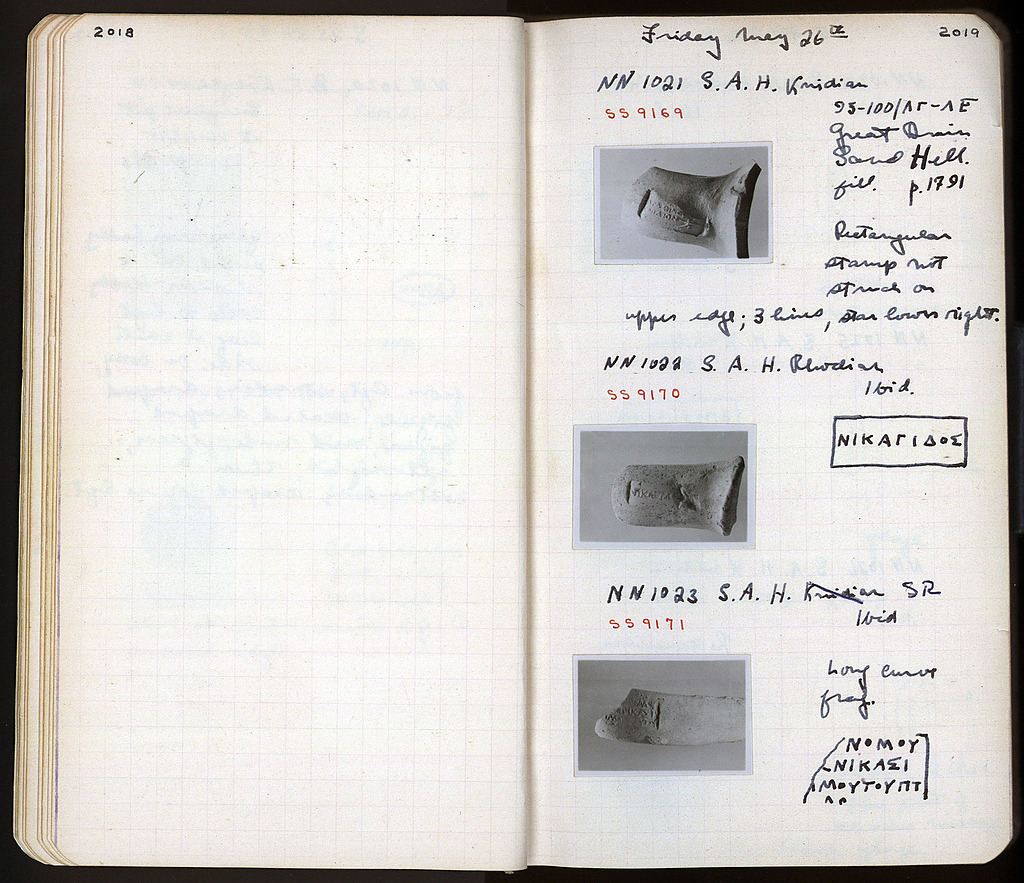 2018
Friday May 26th
2019
NN 1021 S.A.H. Knidian
SS 9169
95-100/ΛΓ-ΛΕ
Great Drain
Sand Hell.
fill. p.1791
Rectangular
stamp not
struck on
upper edge; 3 lines, star lower right.
NN 1022 S.A.H. Rhodian
SS 9170
Ibid.
ΝΙΚΑΓΙΔΟΣ
NN 1023 S.A.H. Knidian SR
SS 9171
Ibid
Long curve
frag.
ΝΟΜΟΥ
ΝΙΚΑΣΙ
ΜΟΥΤΟΥΠΤ